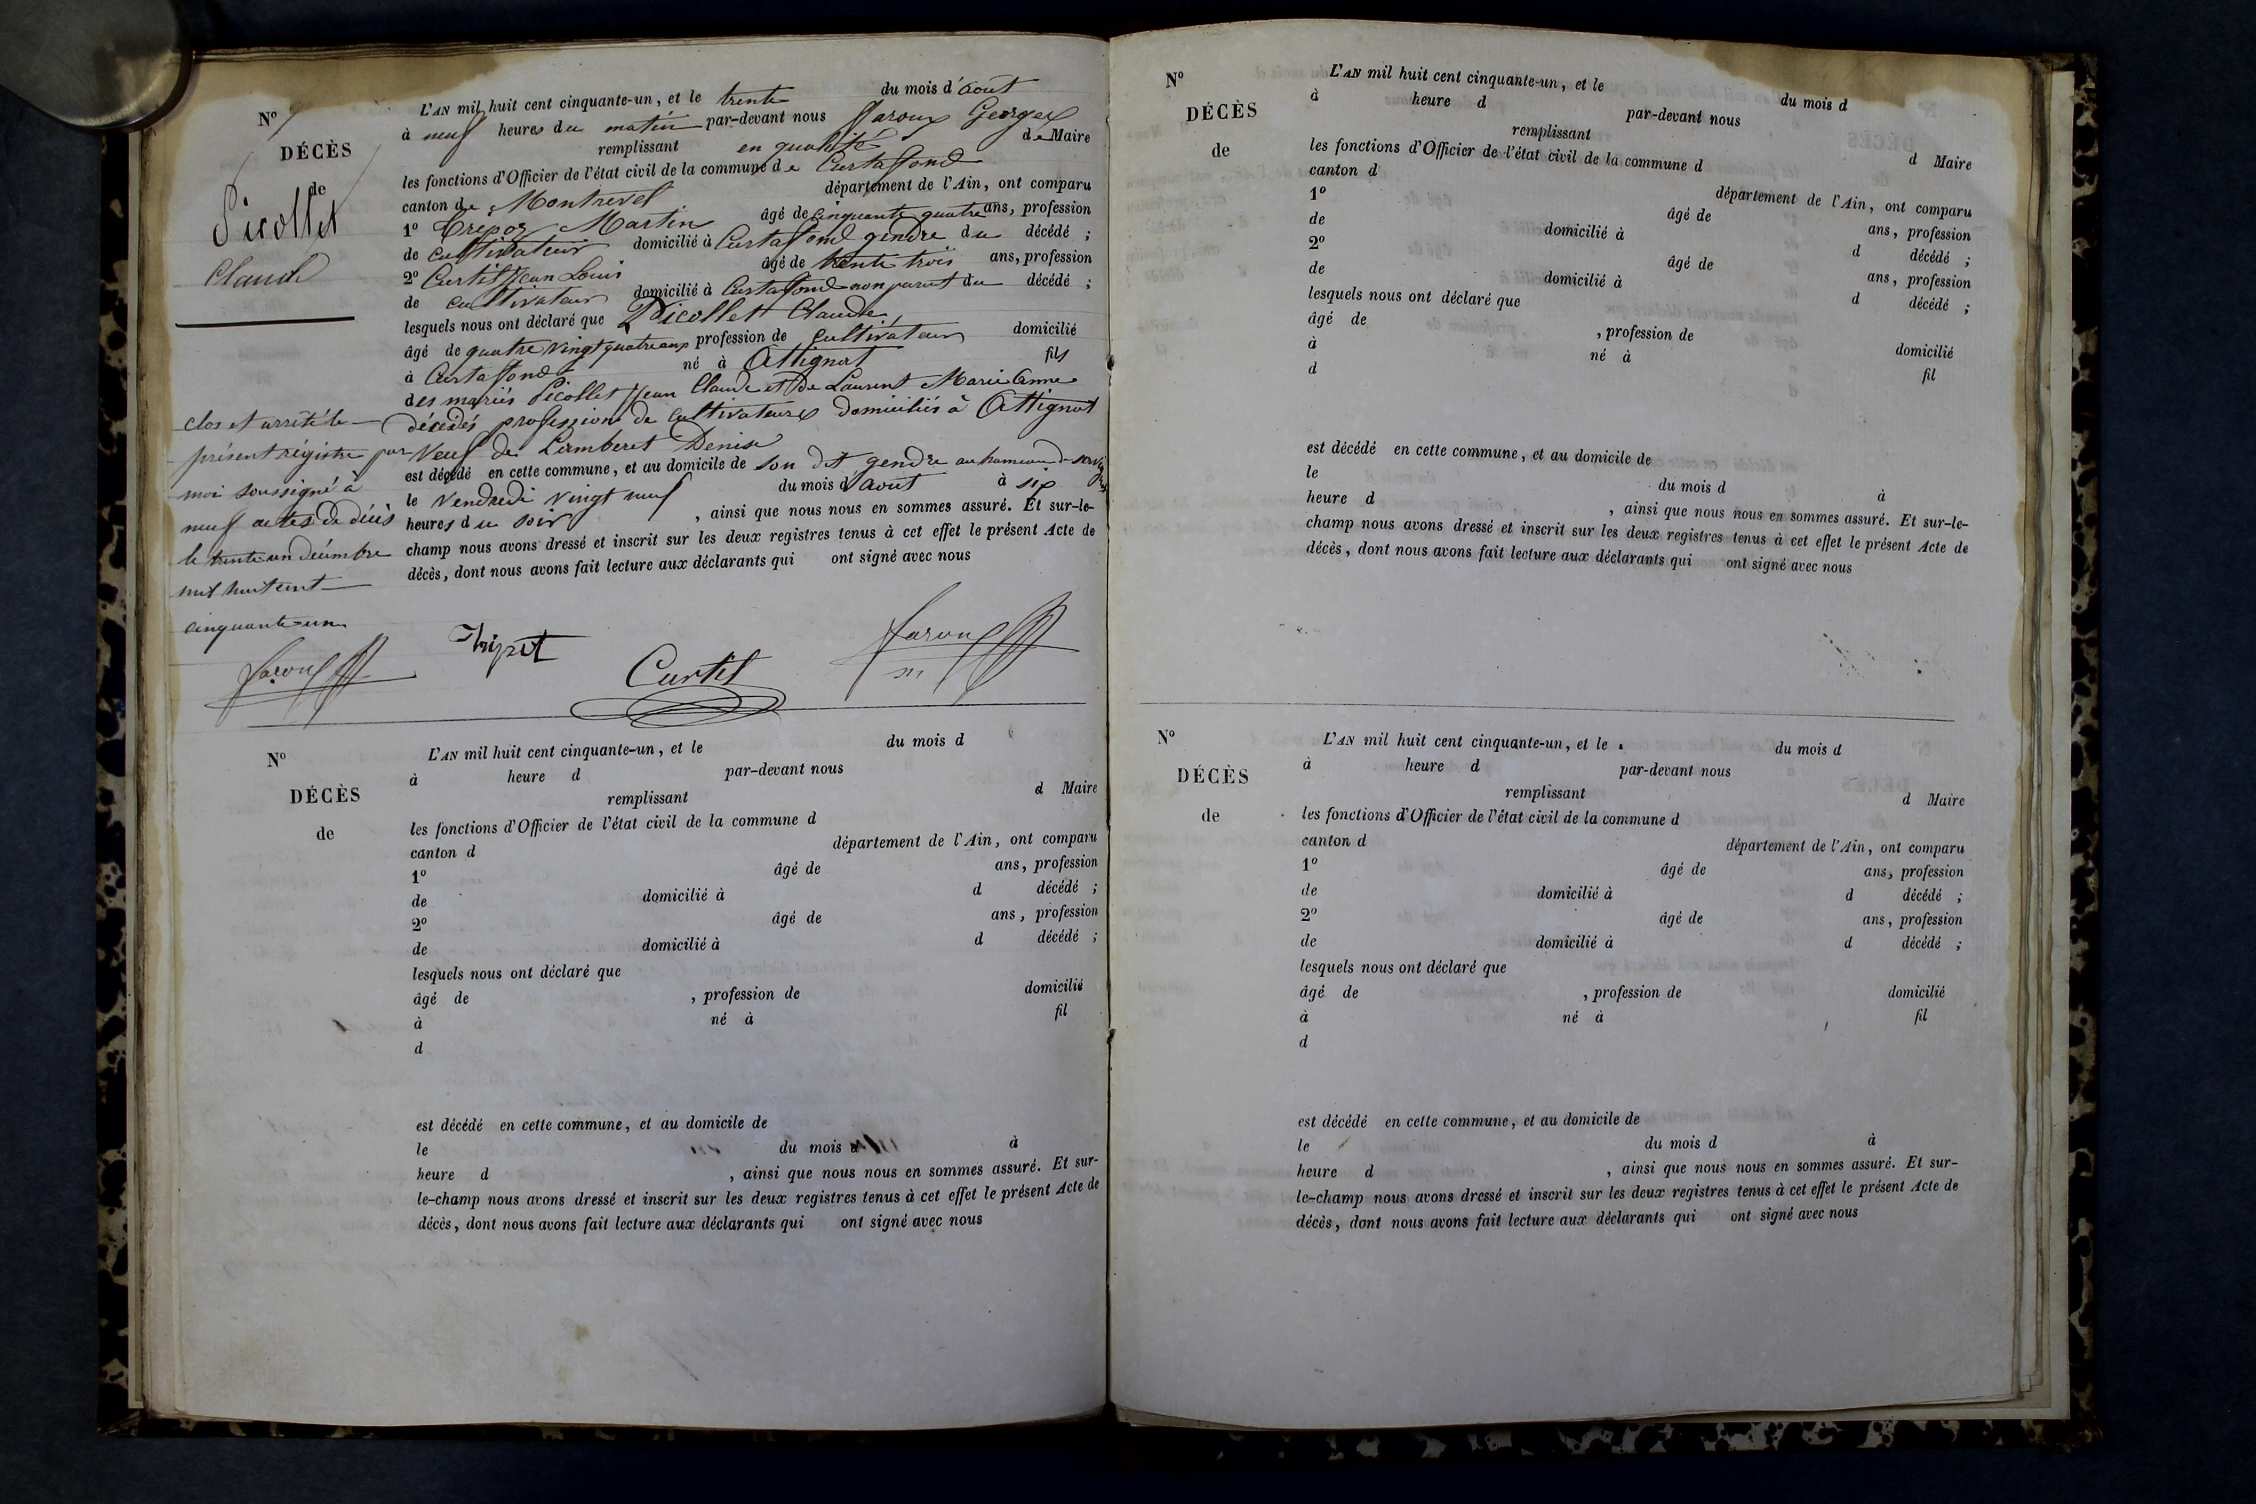 No
DÉCÈS
de
Picollet
Claude
L'AN mil huit cent cinquante-un, et le trente du mois d'aout
à neuf heures du matin par-devant nous Faroux Georges
remplissant en qualité de Maire
les fonctions d'Officier de l'état civil de la commune de Curtafond
canton de Montrevel département de l'Ain, ont comparu
1o Martin âgé de cinquante quatre ans, profession
de cultivateur domicilié à Curtafond gendre du décédé ;
2o Curtil Jean Louis âgé de trente trois ans, profession
de cultivateur domicilié à Curtafond non parent du décédé ;
lesquels nous ont déclaré que Picollet Claude,
âgé de quatre vingt quatre ans profession de cultivateur domicilié
à Curtafond né à Attignat fils
des mariés Picollet Jean Claude et de Laurent Marie Anne
décédés profession de cultivateurs domiciliés à Attignat
Veuf de Lamberet Denise
est décédé en cette commune, et au domicile de son dit gendre au hameau de
le Vendredi vingt neuf du mois d'aout à six
heures du soir, ainsi que nous nous en sommes assuré. Et sur-le-
champ nous avons dressé et inscrit sur les deux registres tenus à cet effet le présent Acte de
décès, dont nous avons fait lecture aux déclarants qui ont signé avec nous
clos et arrêté le
présent régistre par
moi soussigné à
neuf actes de décès
le trente un décembre
mil huit cent
cinquante-un
Faroux
Curtil
Faroux
No
DÉCÈS
de
L'AN mil huit cent cinquante-un, et le du mois d
à heure d par-devant nous
remplissant d Maire
les fonctions d'Officier de l'état civil de la commune d
canton d département de l'Ain, ont comparu
1o âgé de ans, profession
de domicilié à d décédé ;
2o âgé de ans, profession
de domicilié à d décédé ;
lesquels nous ont déclaré que
âgé de , profession de domicilié
à né à fil
d
est décédé en cette commune, et au domicile de
le du mois d à
heure d , ainsi que nous nous en sommes assuré. Et sur-
le-champ nous avons dressé et inscrit sur les deux registres tenus à cet effet le présent Acte de
décès, dont nous avons fait lecture aux déclarants qui ont signé avec nous
No
DÉCÈS
de
L'AN mil huit cent cinquante-un, et le du mois d
à heure d par-devant nous
remplissant d Maire
les fonctions d'Officier de l'état civil de la commune d
canton d département de l'Ain, ont comparu
1o âgé de ans, profession
de domicilié à d décédé ;
2o âgé de ans, profession
de domicilié à d décédé ;
lesquels nous ont déclaré que
âgé de , profession de domicilié
à né à fil
d
est décédé en cette commune, et au domicile de
le du mois d à
heure d , ainsi que nous nous en sommes assuré. Et sur-le-
champ nous avons dressé et inscrit sur les deux registres tenus à cet effet le présent Acte de
décès, dont nous avons fait lecture aux déclarants qui ont signé avec nous
No
DÉCÈS
de
L'AN mil huit cent cinquante-un, et le du mois d
à heure d par-devant nous
remplissant d Maire
les fonctions d'Officier de l'état civil de la commune d
canton d département de l'Ain, ont comparu
1o âgé de ans, profession
de domicilié à d décédé ;
2o âgé de ans, profession
de domicilié à d décédé ;
lesquels nous ont déclaré que
âgé de , profession de domicilié
à né à fil
d
est décédé en cette commune, et au domicile de
le du mois d à
heure d , ainsi que nous nous en sommes assuré. Et sur-
le-champ nous avons dressé et inscrit sur les deux registres tenus à cet effet le présent Acte de
décès, dont nous avons fait lecture aux déclarants qui ont signé avec nous